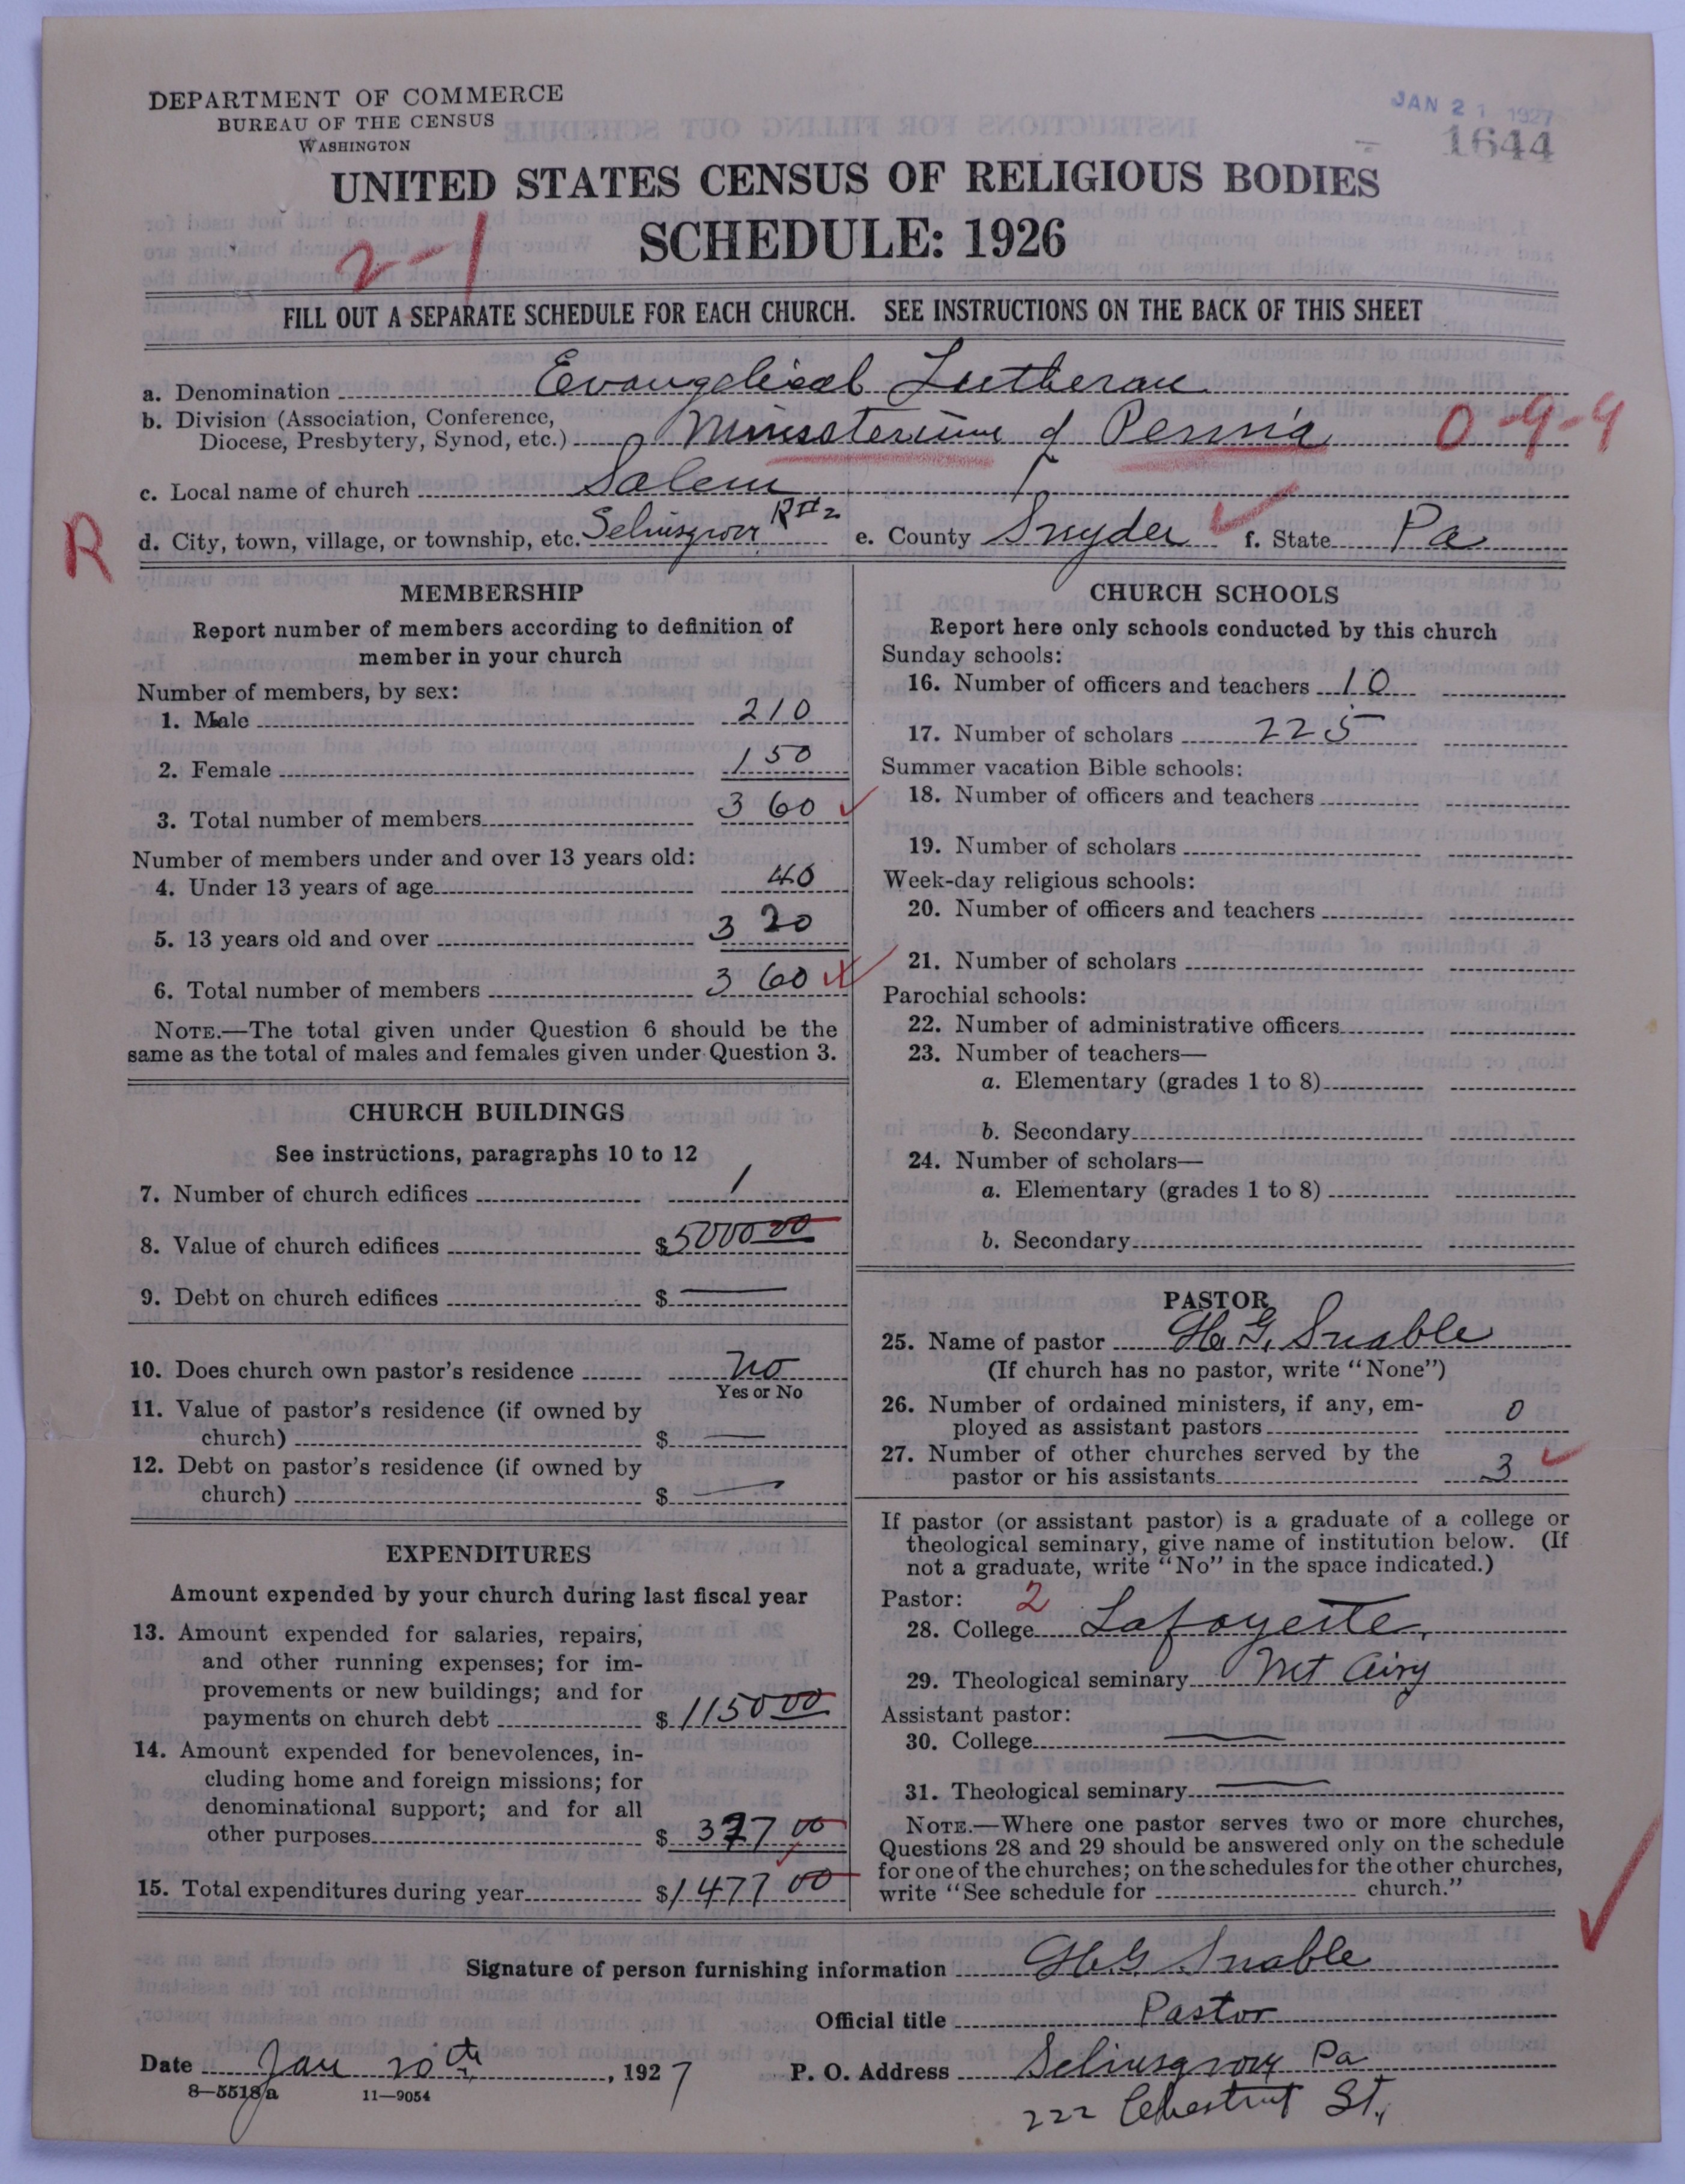 DEPARTMENT OF COMMERCE
BUREAU OF THE CENSUS
WASHINGTON
JAN 21 1927
1644
UNITED STATES CENSUS OF RELIGIOUS BODIES
SCHEDULE: 1926
2-1
FILL OUT A SEPARATE SCHEDULE FOR EACH CHURCH. SEE INSTRUCTIONS ON THE BACK OF THIS SHEET
a. Denomination Evangelical Lutheran
b. Division (Association, Conference,
Diocese, Presbytery, Synod, etc.) Ministerium of Penna 0-9-9
c. Local name of church Salem
R d. City, town, village, or township, etc. Selinsgrove R#2 e. County Snyder f. State Pa
MEMBERSHIP
Report number of members according to definition of
member in your church
Number of members, by sex:
1. Male 210
2. Female 150
3. Total number of members 360
Number of members under and over 13 years old:
4. Under 13 years of age 40
5. 13 years old and over 320
6. Total number of members 360
NOTE.—The total given under Question 6 should be the
same as the total of males and females given under Question 3.
CHURCH BUILDINGS
See instructions, paragraphs 10 to 12
7. Number of church edifices 1
8. Value of church edifices $5000 00
9. Debt on church edifices $ —
10. Does church own pastor's residence no
Yes or No
11. Value of pastor's residence (if owned by
church) $ —
12. Debt on pastor's residence (if owned by
church) $ —
EXPENDITURES
Amount expended by your church during last fiscal year
13. Amount expended for salaries, repairs,
and other running expenses; for im-
provements or new buildings; and for
payments on church debt $1150 00
14. Amount expended for benevolences, in-
cluding home and foreign missions; for
denominational support; and for all
other purposes $ 327 00
15. Total expenditures during year $1477 00
CHURCH SCHOOLS
Report here only schools conducted by this church
Sunday schools:
16. Number of officers and teachers 10
17. Number of scholars 225
Summer vacation Bible schools:
18. Number of officers and teachers
19. Number of scholars
Week-day religious schools:
20. Number of officers and teachers
21. Number of scholars
Parochial schools:
22. Number of administrative officers
23. Number of teachers—
a. Elementary (grades 1 to 8)
b. Secondary
24. Number of scholars—
a. Elementary (grades 1 to 8)
b. Secondary
PASTOR
25. Name of pastor H. G. Snable
(If church has no pastor, write "None")
26. Number of ordained ministers, if any, em-
ployed as assistant pastors 0
27. Number of other churches served by the
pastor or his assistants 3
If pastor (or assistant pastor) is a graduate of a college or
theological seminary, give name of institution below. (If
not a graduate, write "No" in the space indicated.)
Pastor: 2
28. College Lafayette,
29. Theological seminary Mt Airy
Assistant pastor:
30. College —
31. Theological seminary —
NOTE.—Where one pastor serves two or more churches,
Questions 28 and 29 should be answered only on the schedule
for one of the churches; on the schedules for the other churches,
write "See schedule for church."
Signature of person furnishing information H. G. Snable
Official title Pastor
Date Jan 20th, 1927 P. O. Address Selinsgrove Pa
8—5518a 11—9054
222 Chestnut St.,